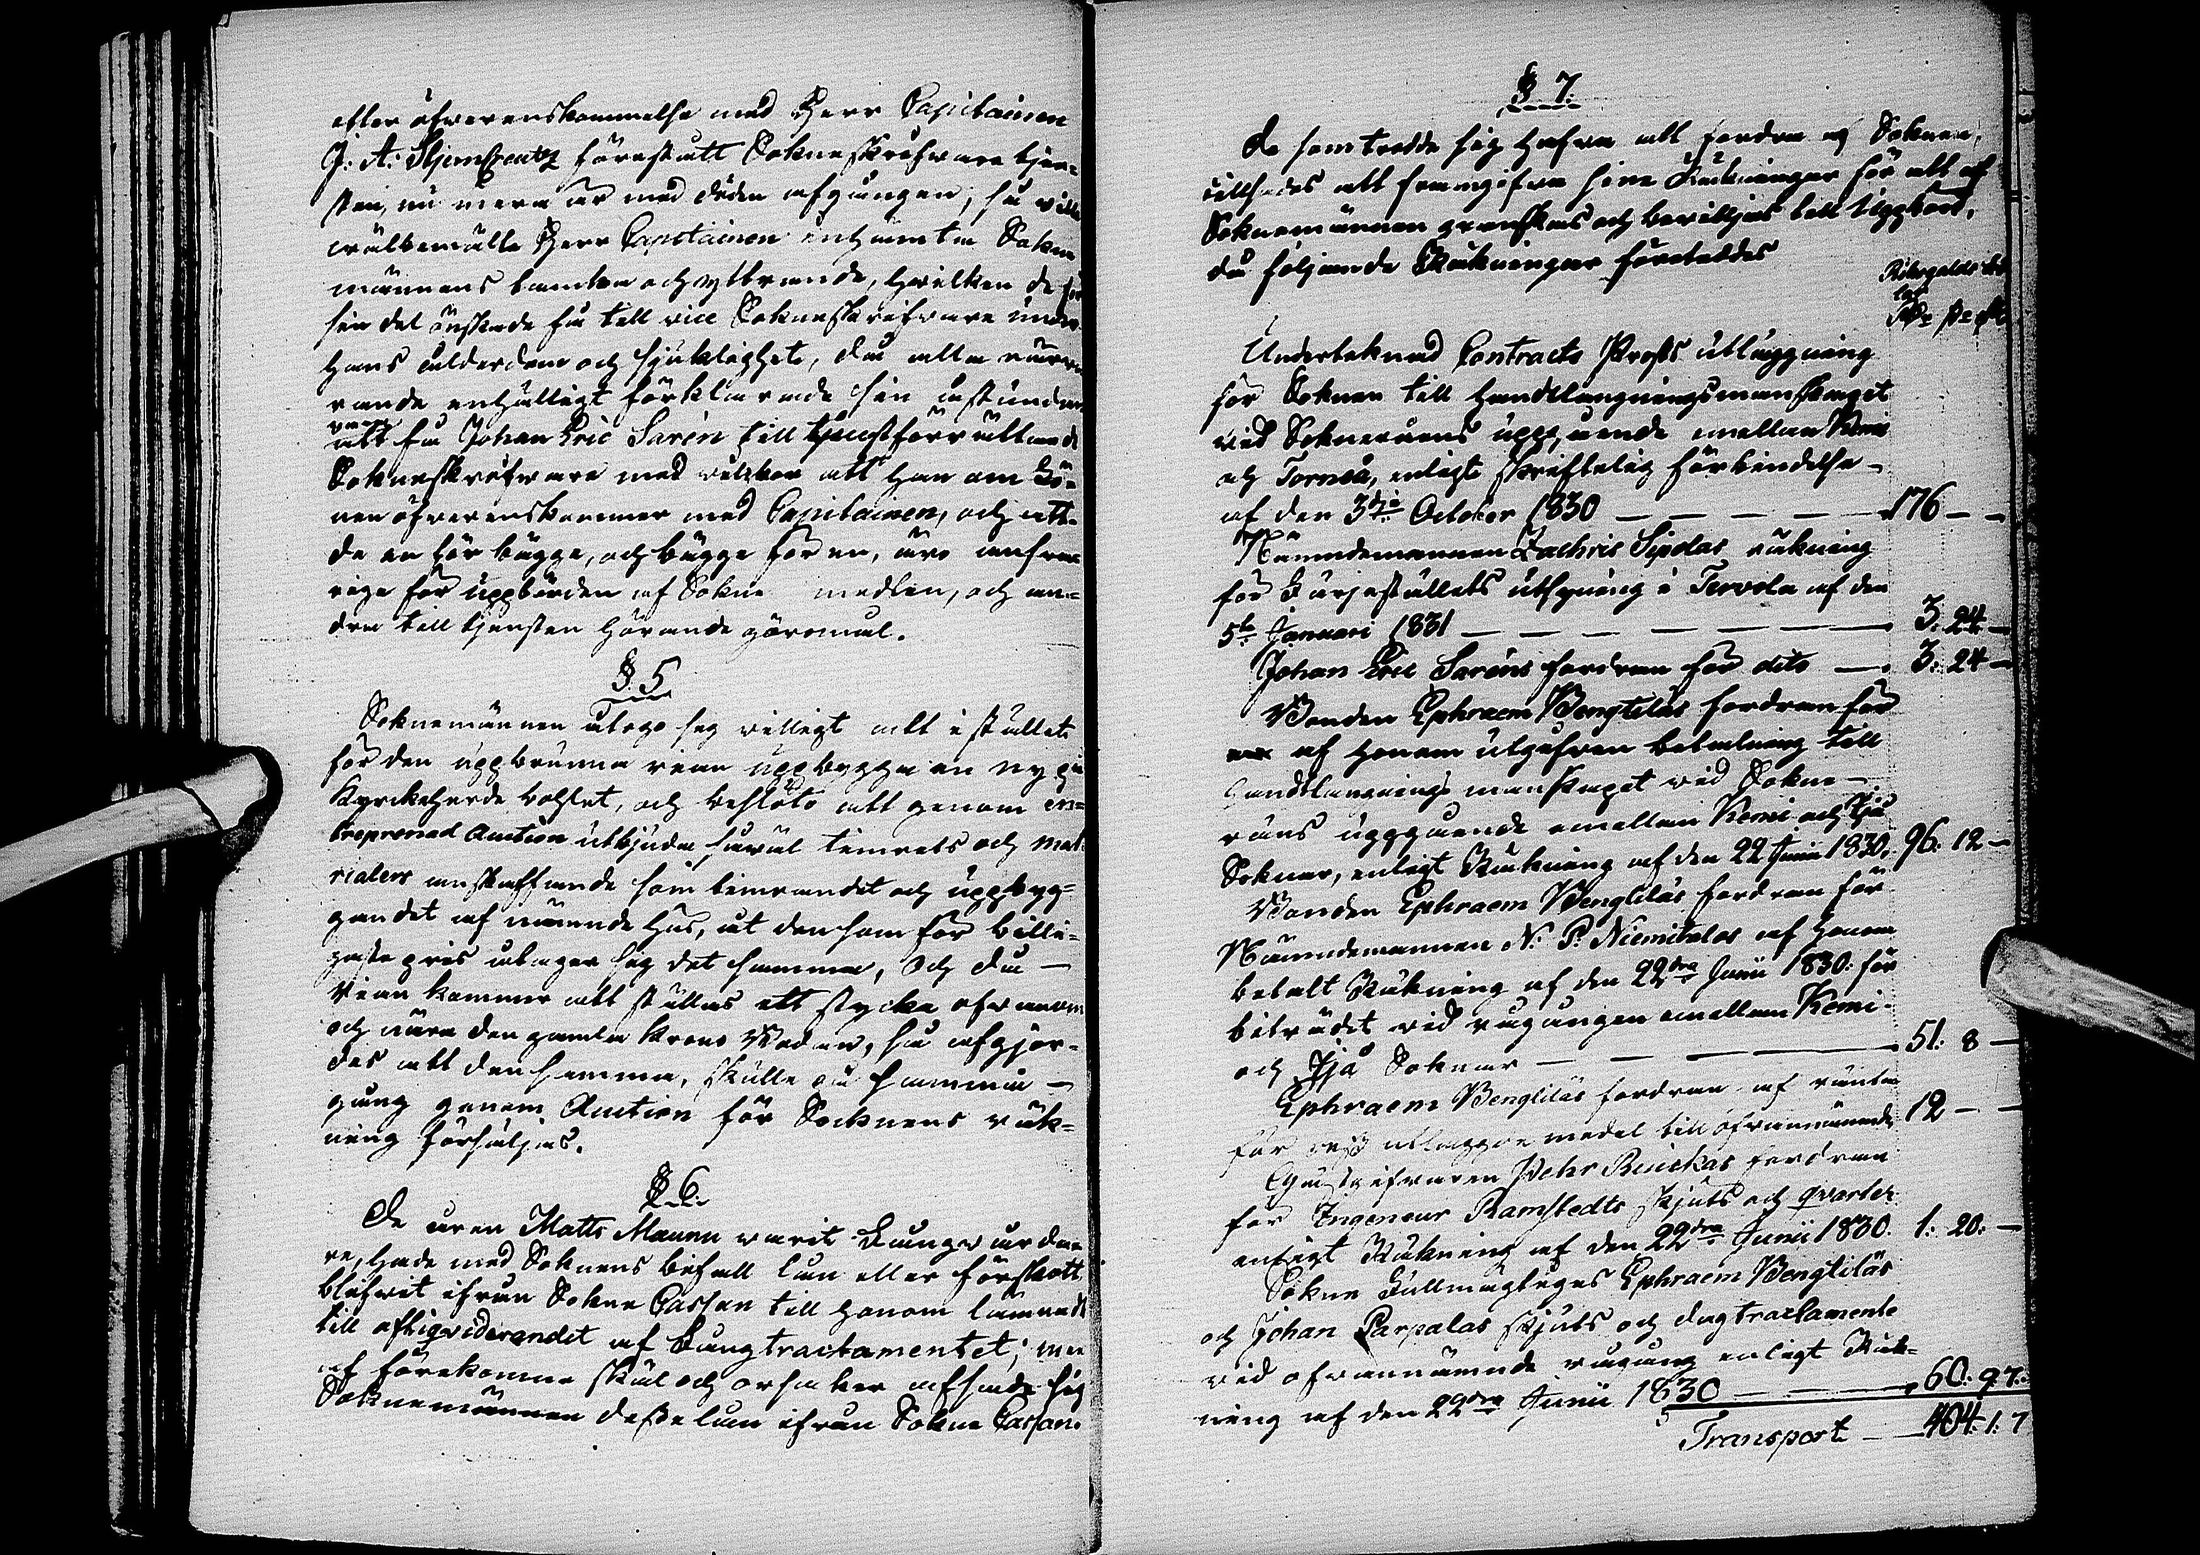 efter öfverenskommelse med Herr Capitainen
G. A. Stjerncreutz förestått Sokneskrifvare tjen-
sten, nu mera är med döden afgången, så ville
wälbemälte Herr Capitainen inhämta Sokne
männens tanka och yttrande, hvilken de för
sin del önskade få till vice Sokneskrifvare under
hans ålderdom och sjuklighet, då alla närva
rande enhälligt förklarade sin åstundan
vara
att få Johan Eric Sarén till tjenstförrättande
Sokneskrifvare med vilkor att han om Lö-
nen öfverenskommer med Capitainen, och att
de en för bägge, och bägge för en, äro ansva
rige för uppbörden af Sokne medlen, och an-
dra till tjensten hörande göromål.
§ 5
Soknemännen åtogo sig villigt att i stället
för den uppbrunna rian uppbygga en ny på
Kyrkoherde bohlet, och beslöts att genom en-
treprenad Auction utbjuda såväl timrets och mat
rialers anskaffande som timrandet och uppbyg-
gandet af nämnde hus, åt den som för billi-
gaste pris åtager sig det samma, och då
rian kommer att ställas ett stycke ofvanom
och nära den gamla Krono Boden, så afgjor-
des att densamma, skulle på samma
gång genom Auction för Socknens räk-
ning försäljas.
§ 6.
De åren Matts Maunu varit Länsvarda-
re, hade med Soknens bifall lån eller förskott
blifvit ifrån Sokne Cassan till honom lämnadt
till afliqviderandet af tractamentet; men
af förekomne skäl och orsaker afsade sig
Soknemännen desse lån ifrån Sokne Cassan.
§ 7.
De som trodde sig hafva att fordra af Soknen,
tillsades att framgifva sina Räkningar för att af
Soknemännen granskas och beviljas till Uppbörd,
då följande Räkningar företeddes
Undertecknad Contracts Prosts utläggning
för Soknen till Handtlangningsmanskapet
vid Sokneråens uppgående emellan Kemi
och Torneå, enligt skriftelig förbindelse
af den 3die October 1830 — — — — 176 — —
Nämndemannen Zachris Sipolas räkning
för Färjeställets utsyning i Tervola af den
5te Januari 1831 — — — — — — 3. 24 —
Johan Eric Saréns fordran för dito — 3: 24 —
Bonden Ephraem Bengtiläs fordran för
af honom utgifven betalning till
Handtlangnings manskapet vid Sokne
råns uppgående emellan Kemi och Ijå
Soknar, enligt Räkning af den 22 Junii 1830. 96: 12 —
Bonden Ephraem Bengtiläs fordran för
Nämndemannen N. P. Niemitalos af honom
betalt Räkning af den 22dra Junii 1830 för
biträdet vid rågången emellan Kemi
och Ijå Soknar — — — — — 51: 8 —
Ephraem Bengtiläs fordran af ränta
för utlaggde medel till ofvannämnde 12 — —
Gästgifvaren Pehr Ruickas fordran
för Ingeneur Ramstedts skjuts och qvarter
enligt Räkning af den 22dra Junii 1830. 1: 20. —
Sokne Fullmägtiges Ephraem Bengtiläs
och Johan Parpalas skjuts och dagtractamente
vid ofvannämnde rågång enligt Räk-
ning af den 22dra Junii 1830 — — 60: 9 7.
Transport — 404. 1. 7